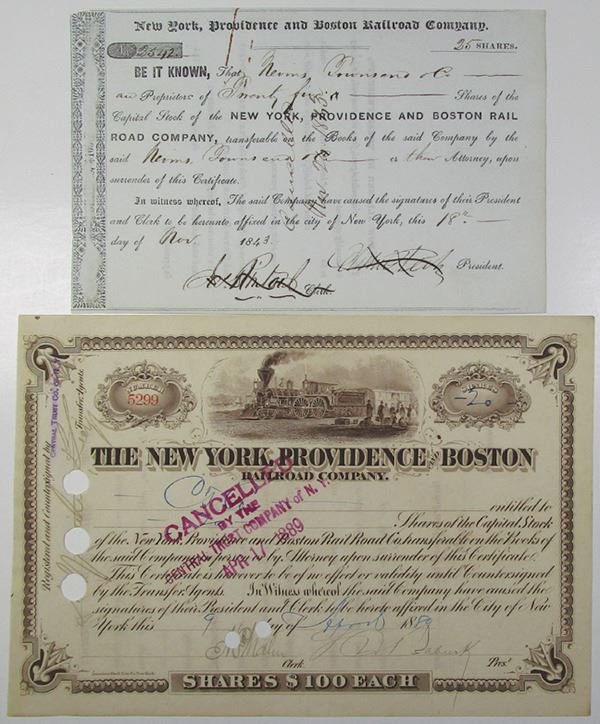 New York, Providence and Boston Railroad Company.
2542 25 SHARES.
BE IT KNOWN, That Nevins, Townsend & Co
are Proprietors of Twenty five Shares of the
Capital Stock of the NEW YORK, PROVIDENCE AND BOSTON RAIL
ROAD COMPANY, transferable on the Books of the said Company by the
said Nevins, Townsend & Co or their Attorney, upon
surrender of this Certificate.
In witness whereof, The said Company have caused the signatures of their President
and Clerk to be hereunto affixed in the city of New York, this 18th
day of Nov. 1843.
President.
Clerk.
NUMBER
5299
SHARES
20
THE NEW YORK, PROVIDENCE AND BOSTON
RAILROAD COMPANY.
entitled to
Shares of the Capital Stock
of the New York, Providence and Boston Rail Road Co. transferable on the Books of
the said Company in person or by Attorney upon surrender of this Certificate.
This Certificate is however to be of no effect or validity until Countersigned
by the Transfer Agents. In Witness whereof the said Company have caused the
signatures of their President and Clerk to be hereto affixed in the City of New
York this 9 day of April 1889
Clerk. Prest.
SHARES $100 EACH
CANCELLED
BY THE
CENTRAL TRUST COMPANY of N.Y.
APR 17 1889
Registered and Countersigned by
CENTRAL TRUST CO. OF N.Y.
Transfer Agents.